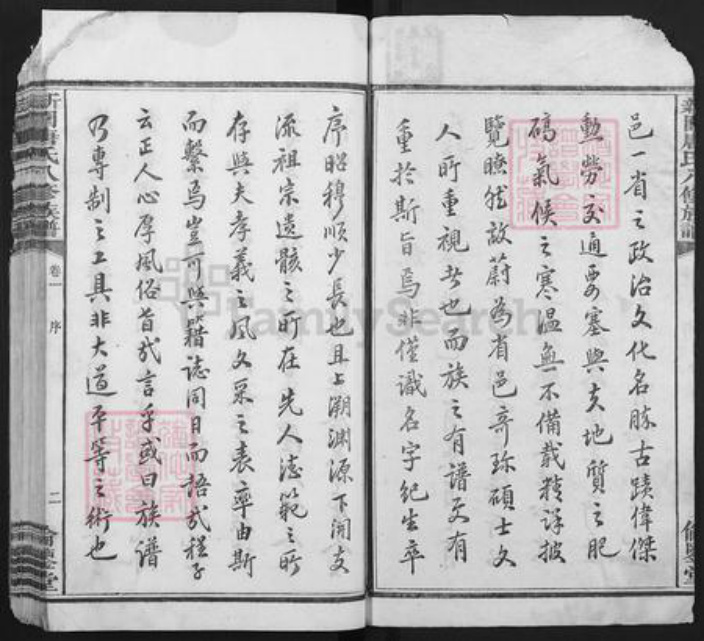 邑一省之政治文化名勝古蹟偉傑
勳勞交通要塞與夫地質之肥
磽氣候之寒溫無不備載精詳披
覽瞭然故蔚為省邑奇珍碩士文
人所重視者也而族之有譜更有
重於斯旨焉非僅識名字紀生卒
序昭穆順少長也且上溯淵源下開支
派祖宗遺骸之所在先人德範之所
存與夫孝義之風文采之表率由斯
而繫焉豈可與籍誌同日而語哉程子
云正人心厚風俗旨哉言乎或曰族譜
乃專制之工具非大道平等之術也
氏八修族譜
卷一
序
二
堂
FamilySearch